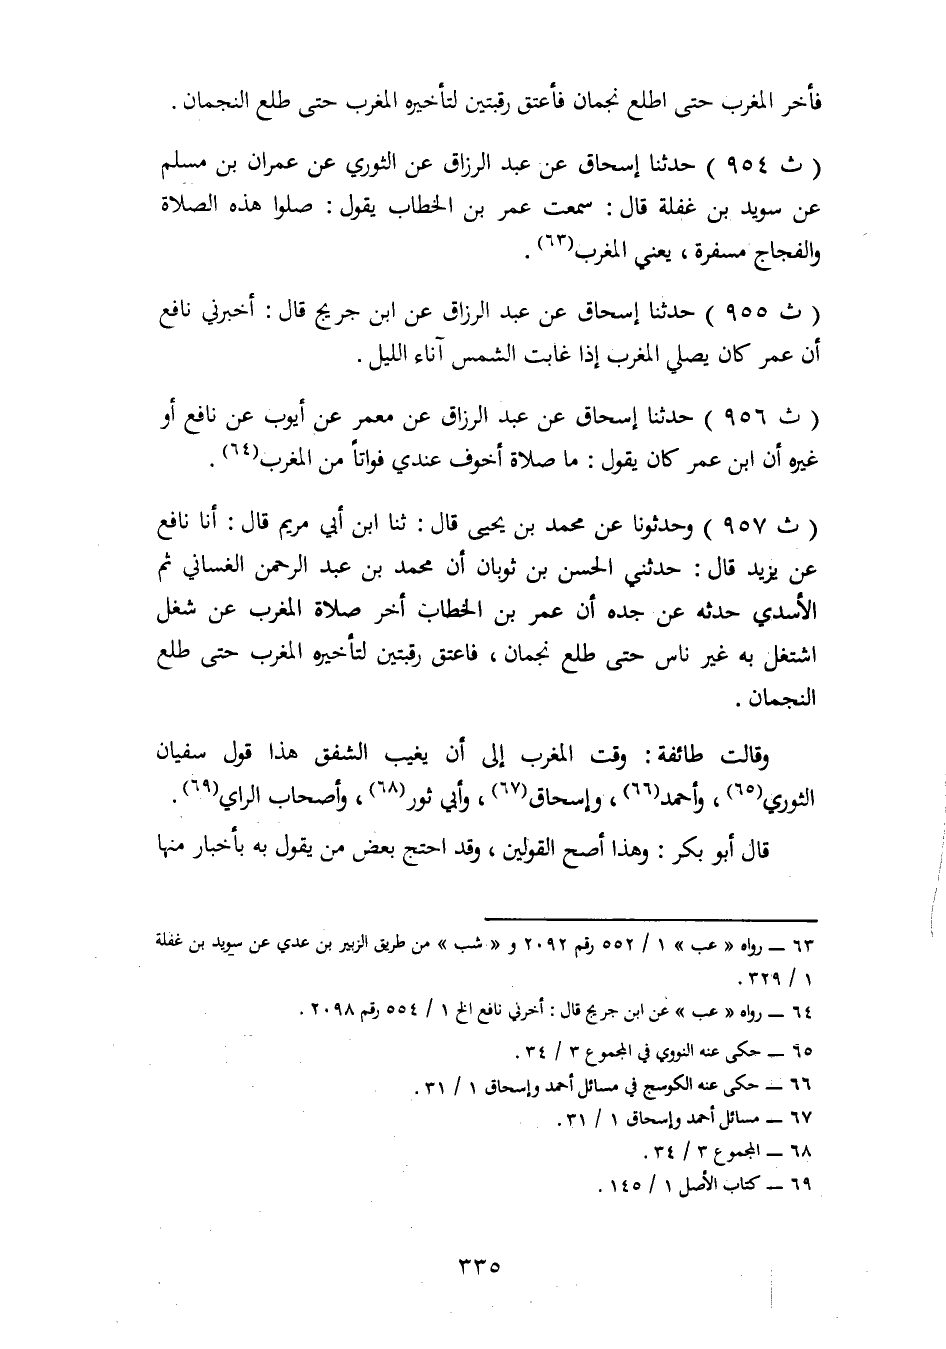 فأخر المغرب حتى اطلع نجمان فأعتق رقبتين لتأخيره المغرب حتى طلع النجمان .
( ث ٩٥٤ ) حدثنا إسحاق عن عبد الرزاق عن الثوري عن عمران بن مسلم
عن سويد بن غفلة قال : سمعت عمر بن الخطاب يقول : صلوا هذه الصلاة
والفجاج مسفرة ، يعني المغرب(٦٣) .
( ث ٩٥٥ ) حدثنا إسحاق عن عبد الرزاق عن ابن جريج قال : أخبرني نافع
أن عمر كان يصلي المغرب إذا غابت الشمس آناء الليل .
( ث ٩٥٦ ) حدثنا إسحاق عن عبد الرزاق عن معمر عن أيوب عن نافع أو
غيره أن ابن عمر كان يقول : ما صلاة أخوف عندي فواتاً من المغرب(٦٤) .
( ث ٩٥٧ ) وحدثونا عن محمد بن يحيى قال : ثنا ابن أبي مريم قال : أنا نافع
عن يزيد قال : حدثني الحسن بن ثوبان أن محمد بن عبد الرحمن الغساني ثم
الأسدي حدثه عن جده أن عمر بن الخطاب أخر صلاة المغرب عن شغل
اشتغل به غير ناس حتى طلع نجمان ، فاعتق رقبتين لتأخيره المغرب حتى طلع
النجمان .
وقالت طائفة : وقت المغرب إلى أن يغيب الشفق هذا قول سفيان
الثوري(٦٥) ، وأحمد(٦٦) ، وإسحاق(٦٧) ، وأبي ثور(٦٨) ، وأصحاب الراي(٦٩) .
قال أبو بكر : وهذا أصح القولين ، وقد احتج بعض من يقول به بأخبار منها
٦٣ ــ رواه « عب » ١ / ٥٥٢ رقم ٢٠٩٢ و « شب » من طريق الزبير بن عدي عن سويد بن غفلة
١ / ٣٢٩ .
٦٤ ــ رواه « عب » عن ابن جريج قال : أخرني نافع الخ ١ / ٥٥٤ رقم ٢٠٩٨ .
٦٥ ــ حكى عنه النووي في المجموع ٣ / ٣٤ .
٦٦ ــ حكى عنه الكوسج في مسائل أحمد وإسحاق ١ / ٣١ .
٦٧ ــ مسائل أحمد وإسحاق ١ / ٣١ .
٦٨ ــ المجموع ٣ / ٣٤ .
٦٩ ــ كتاب الأصل ١ / ١٤٥ .
٣٣٥